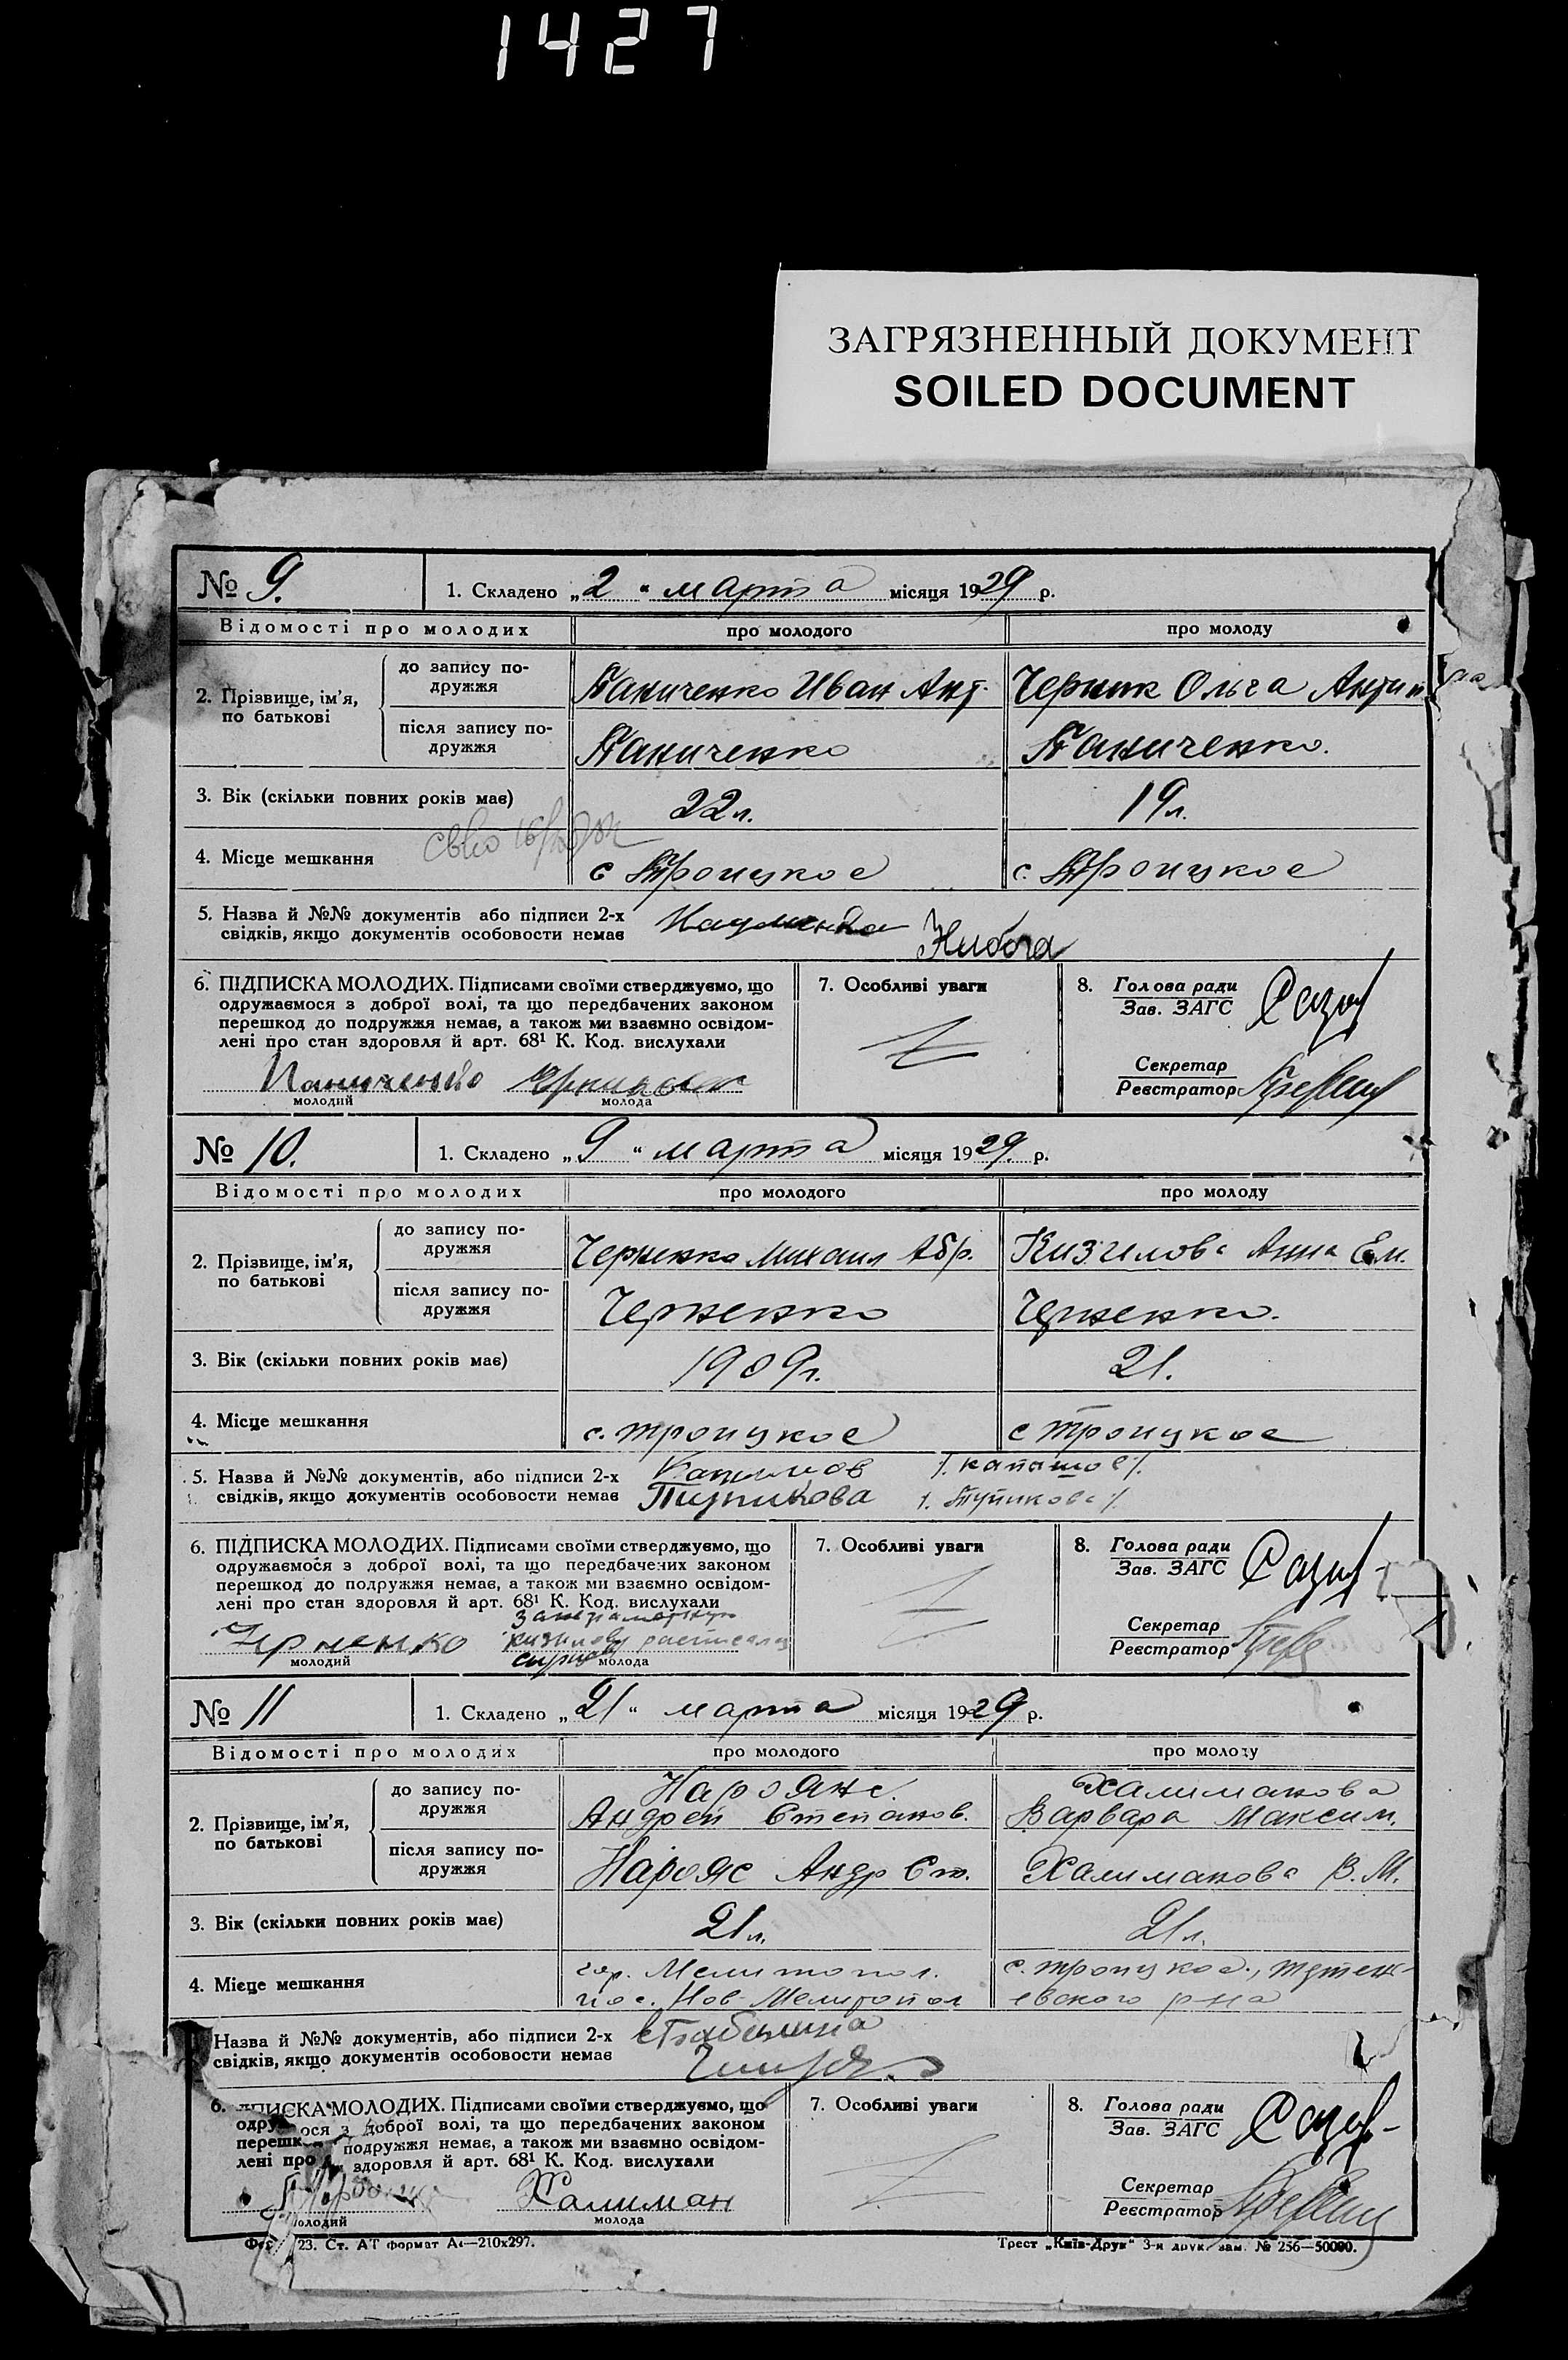 1427
ЗАГРЯЗНЕННЫЙ ДОКУМЕНТ
SOILED DOCUMENT
№ 9. 1. Складено „2" марта місяця 1929 р.
Відомості про молодих про молодого про молоду
2. Прізвище, ім'я, по батькові
до запису подружжя Паниченко Иван Ант. Черник Ольга Антин
після запису подружжя Паниченко Паниченко.
3. Вік (скільки повних років має) 22 л. 19 л.
4. Місце мешкання с Троицкое с. Троицкое
5. Назва й №№ документів або підписи 2-х
свідків, якщо документів особовости немає
6. ПІДПИСКА МОЛОДИХ. Підписами своїми стверджуємо, що
одружаємося з доброї волі, та що передбачених законом
перешкод до подружжя немає, а також ми взаємно освідом-
лені про стан здоровля й арт. 68¹ К. Код. вислухали
Паниченко
молодий молода
7. Особливі уваги
8. Голова ради
Зав. ЗАГС
Секретар
Реєстратор
№ 10. 1. Складено „9" марта місяця 1929. р.
Відомості про молодих про молодого про молоду
2. Прізвище, ім'я, по батькові
до запису подружжя Черненко Михаил Абр. Кизилова Анна Ем.
після запису подружжя Черненко Черненко.
3. Вік (скільки повних років має) 1909 г. 21.
4. Місце мешкання с. Троицкое с Троицкое
5. Назва й №№ документів, або підписи 2-х
свідків, якщо документів особовости немає Тупикова /. Тупикова /.
6. ПІДПИСКА МОЛОДИХ. Підписами своїми стверджуємо, що
одружаємося з доброї волі, та що передбачених законом
перешкод до подружжя немає, а також ми взаємно освідом-
лені про стан здоровля й арт. 68¹ К. Код. вислухали
Черненко
молодий молода
7. Особливі уваги
8. Голова ради
Зав. ЗАГС
Секретар
Реєстратор
№ 11 1. Складено „21" марта місяця 1929 р.
Відомості про молодих про молодого про молоду
2. Прізвище, ім'я, по батькові
до запису подружжя Андрей Степанов. Халиманова Варвара Максим.
після запису подружжя Андр Ст. Халиманова В. М.
3. Вік (скільки повних років має) 21 л. 21 л.
4. Місце мешкання гор. Мелитопол. с. Троицкое.,
пос. Нов-Мелитопол евского р-на
Назва й №№ документів, або підписи 2-х
свідків, якщо документів особовости немає
6. ПИСКА МОЛОДИХ. Підписами своїми стверджуємо, що
одру ося з доброї волі, та що передбачених законом
перешк подружжя немає, а також ми взаємно освідом-
лені про здоровля й арт. 68¹ К. Код. вислухали
Халиман
молодий молода
7. Особливі уваги
8. Голова ради
Зав. ЗАГС
Секретар
Реєстратор
23. Ст. АТ формат А₄—210х297. Трест „Київ-Друк" 3-я друк. зам. № 256—50000.